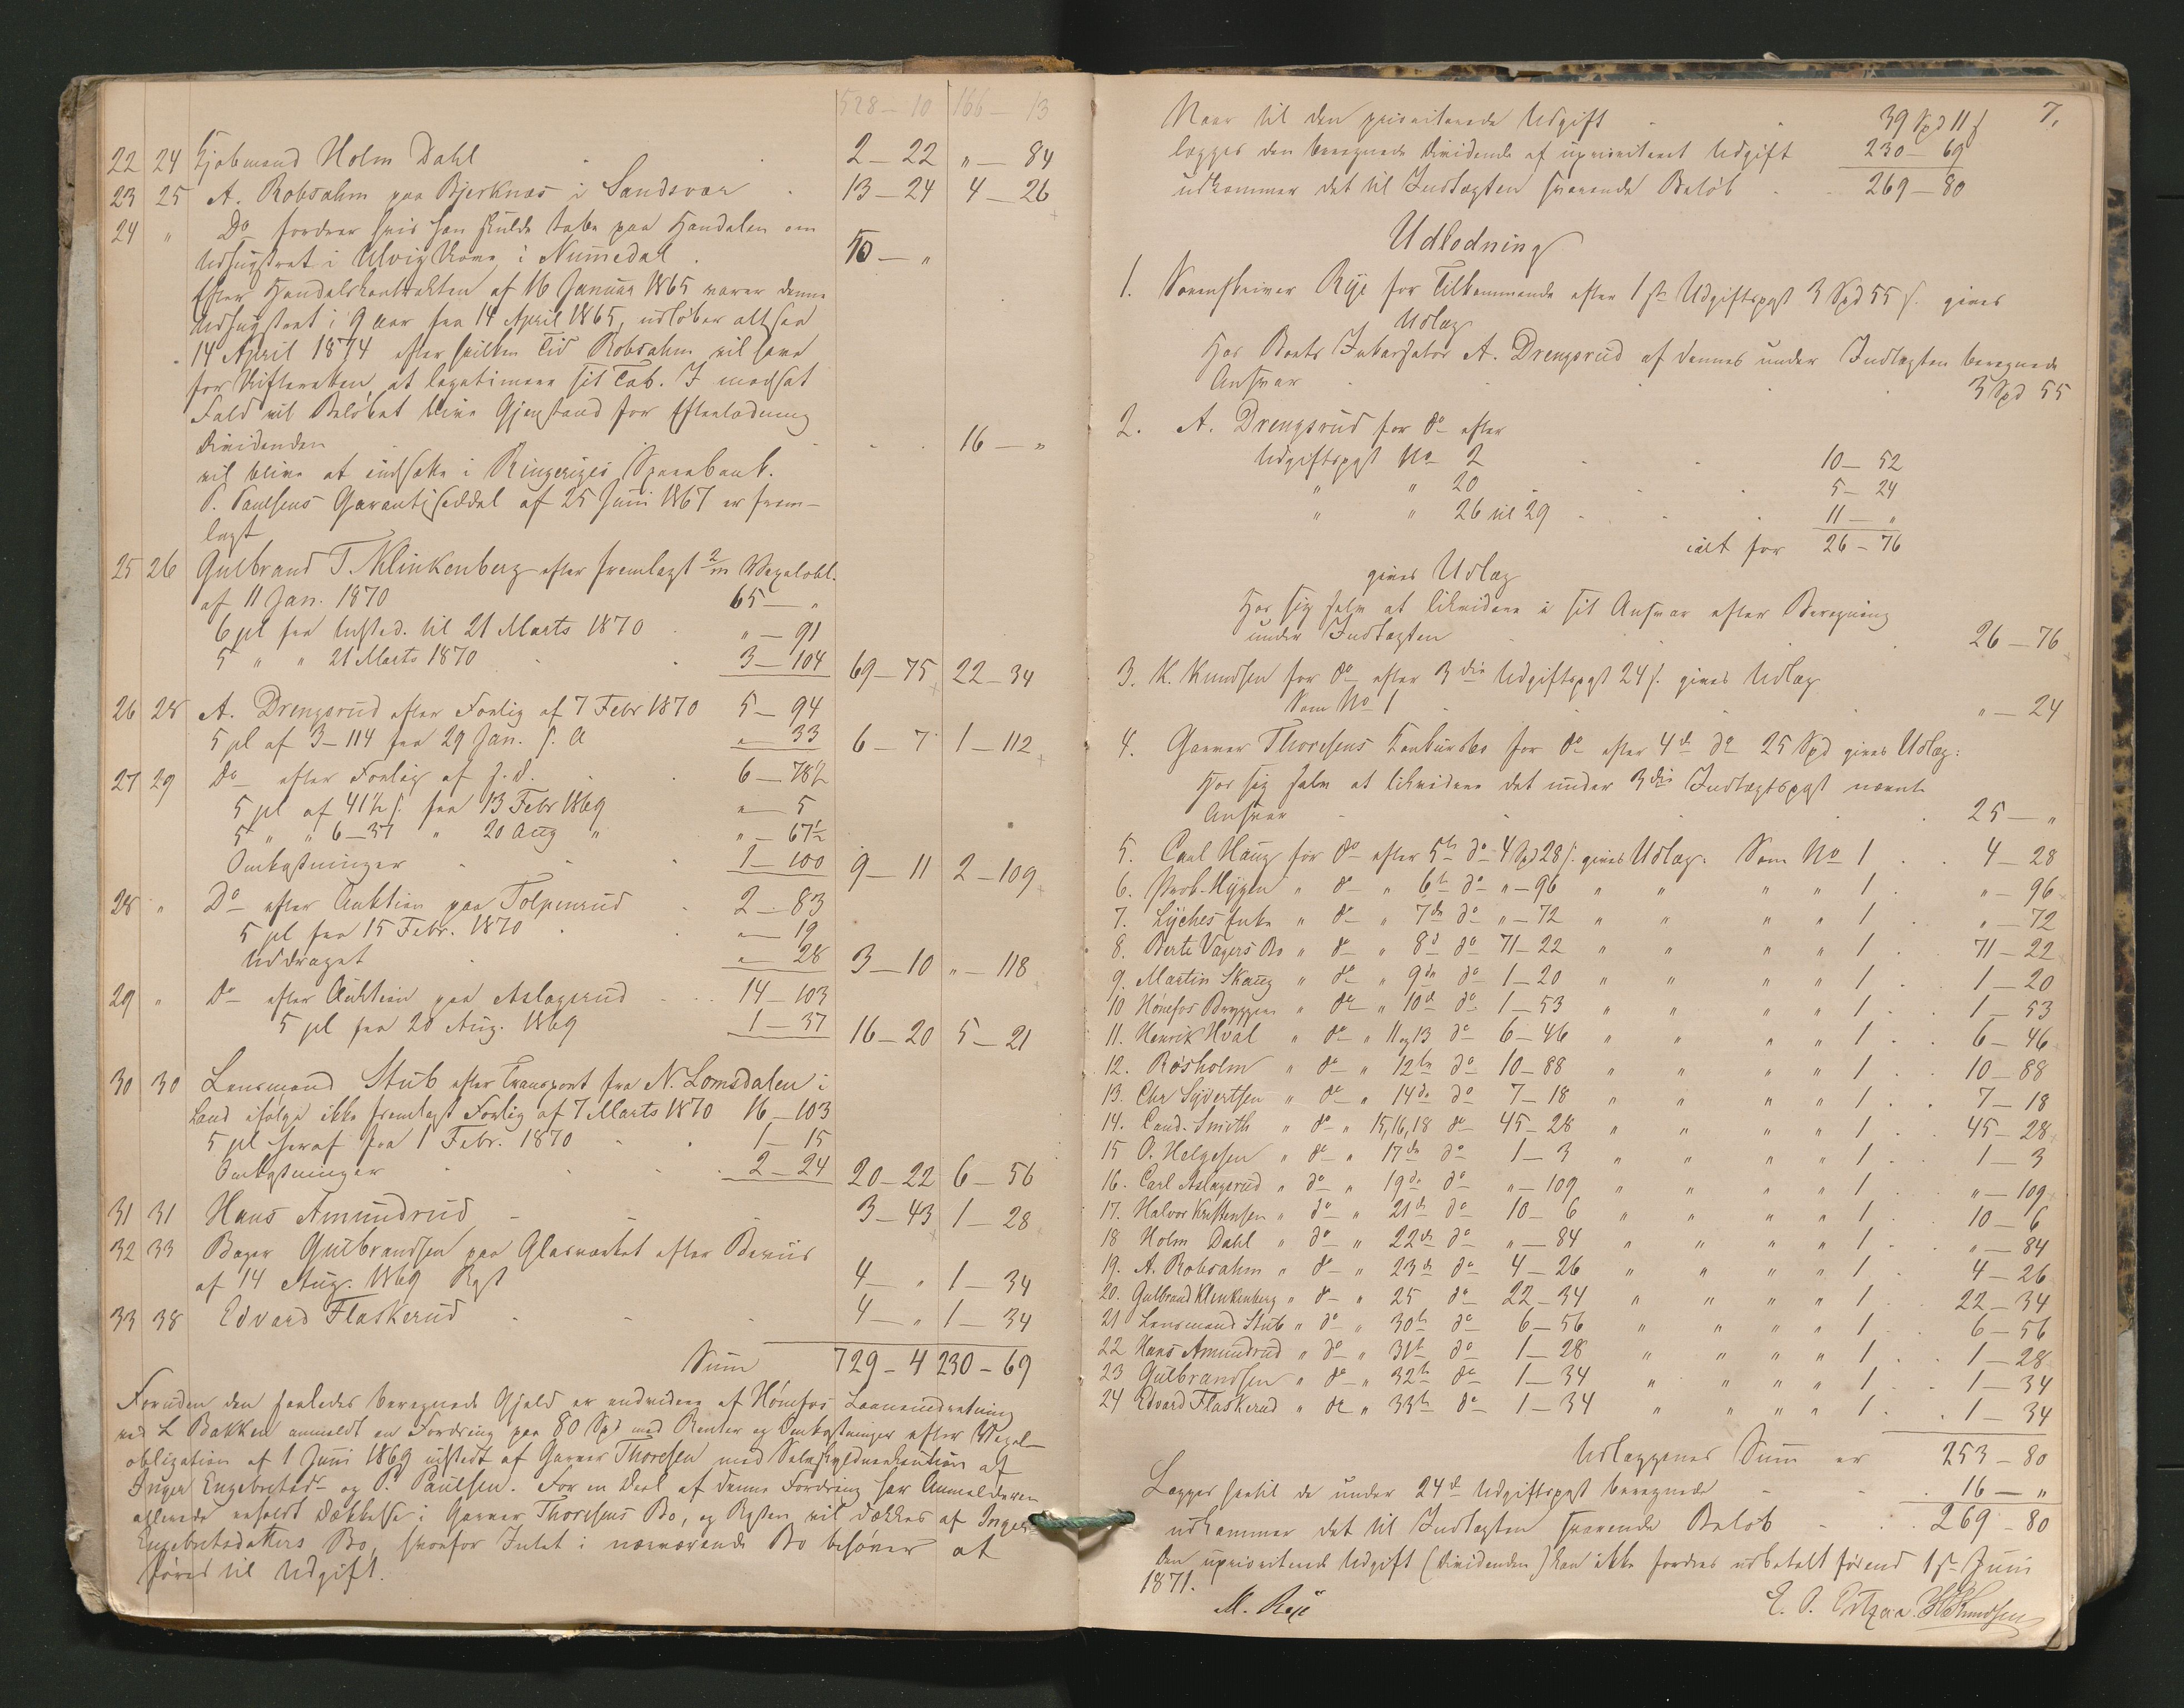 528 – 10 166 – 13
22 24 Kjøbmand Holm Dahl 2 – 22 " – 84
23 25 A. Robsahm paa Bjerknæs i Sandsvær 13 – 24 4 – 26
24 " Do fordrer hvis han skulde tabe paa Handelen om
Udhugstret i Ulvig Skove i Numedal 50 – "
Efter Handelskontrakten af 16 Januar 1865 varer denne
Udhugstret i 9 Aar fra 14 April 1865, udløber altsaa
14 April 1874 efter hvilken Tid Robsahm vil have
for Skifteretten at legitimere sit Tab. I modsat
Fald vil Beløbet blive Gjenstand for Efterlodning
Dividenden 16 – "
vil blive at indsætte i Ringeriges Sparebank.
P. Paulsens Garantiseddel af 25 Juni 1867 er frem-
lagt
25 26 Gulbrand T. Klinkenberg efter fremlagt 2/m Vexelobl.
af 11 Jan. 1870 65 – "
6 pCt fra Udsted. til 21 Marts 1870 " – 91
5 " " 21 Marts 1870 3 – 104 69 – 75 22 – 34
26 28 A. Drengsrud efter Forlig af 7 Febr 1870 5 – 94
5 pCt af 3 – 114 fra 29 Jan. s. A " 33 6 – 7 1 – 112
27 29 Do efter Forlig af s. d. 6 – 78½
5 pCt af 41½ s. fra 13 Febr 1869 " 5
5 " " 6 – 37 " 20 Aug " " – 67½
Omkostninger 1 – 100 9 – 11 2 – 109
28 " Do efter Auktion paa Tolpinrud 2 – 83
5 pCt fra 15 Febr. 1870 " 19
Uddraget " 28 3 – 10 " – 118
29 " Do efter Auktion paa Aslagsrud 14 – 103
5 pCt fra 20 Aug. 1869 1 – 37 16 – 20 5 – 21
30 30 Lensmand Stub efter Transport fra N. Lomsdalen i
Land ifølge ikke fremlagt Forlig af 7 Marts 1870 16 – 103
5 pCt heraf fra 1 Febr. 1870 1 – 15
Omkostninger 2 – 24 20 – 22 6 – 56
31 31 Hans Amundrud 3 – 43 1 – 28
32 33 Bager Gulbrandsen paa Glasværket efter Beviis
af 14 Aug. 1869 Rest 4 – " 1 – 34
33 38 Edvard Flaskerud 4 – " 1 – 34
Sum 729 – 4 230 – 69
Foruden den saaledes beregnede Gjæld er endvidere af Hønefos Laaneindretning
ved L Bakken anmeldt en Fordring paa 80 Spd med Renter og Omkostninger efter Vexel-
obligation af 1 Juni 1869 udstedt af Garver Thoresen med Selvskyldnerkaution af
Inger Engebretsdr og P. Paulsen. For en Deel af denne Fordring har Anmelderen
allerede erholdt Dækkelse i Garver Thoresens Bo, og Resten vil dækkes af Inger
Engebretsdatters Bo, hvorfor Intet i nærværende Bo behøver at
føres til Udgift.
7.
Naar til den prioriterede Udgift 39 Spd 11 s
lægges den beregnede Dividende af uprioriteret Udgift 230 – 69
udkommer det til Indtægten svarende Beløb 269 – 80
Udlodning
1. Sorenskriver Rye for Tilkommende efter 1ste Udgiftspost 3 Spd 55 s. gives
Udlæg
Hos Boets Inkassator A. Drengsrud af dennes under Indtægten beregnede
Ansvar 3 Spd 55
2. A. Drengsrud for do efter
Udgiftspost No 2 10 – 52
" " 20 5 – 24
" " 26 til 29 11 – "
ialt for 26 – 76
gives Udlæg
Hos sig selv at likvidere i sit Ansvar efter Beregning
under Indtægten 26 – 76
3. K. Knudsen for do efter 3die Udgiftspost 24 s. gives Udlæg
Som No 1 " – 24
4. Garver Thoresens Konkursbo for do efter 4de do 25 Spd gives Udlæg:
Hos sig selv at likvidere det under 3die Indtægtspost nævnte
Ansvar 25 – "
5. Carl Haug for do efter 5te do 4 Spd 28 s. gives Udlæg. Som No 1 4 – 28
6. Prok. Hygen " do " 6te do " – 96 " " " " 1 " – 96
7. Lyches Enke " do " 7de do " – 72 " " " " 1 " – 72
8. Berte Vagers Bo " do " 8de do 71 – 22 " " " " 1 71 – 22
9. Martin Skaug " do " 9de do 1 – 20 " " " " 1 1 – 20
10 Hønefos Bryggeri " do " 10de do 1 – 53 " " " " 1 1 – 53
11. Henrik Hval " do " 11 og 13 do 6 – 46 " " " " 1 6 – 46
12. Røsholm " do " 12te do 10 – 88 " " " " 1 10 – 88
13. Chr Syvertsen " do " 14de do 7 – 18 " " " " 1 7 – 18
14. Cand. Smith " do " 15, 16, 18 do 45 – 28 " " " " 1 45 – 28
15 O. Helgesen " do " 17de do 1 – 3 " " " " 1 1 – 3
16. Carl Aslagsrud " do " 19de do " – 109 " " " " 1 " – 109
17. Halvor Kristensen " do " 21de do 10 – 6 " " " " 1 10 – 6
18 Holm Dahl " do " 22de do " – 84 " " " " 1 " – 84
19. A. Robsahm " do " 23de do 4 – 26 " " " " 1 4 – 26
20. Gulbrand Klinkenberg " do " 25 do 22 – 34 " " " " 1 22 – 34
21 Lensmand Stub " do " 30te do 6 – 56 " " " " 1 6 – 56
22 Hans Amundrud " do " 31te do 1 – 28 " " " " 1 1 – 28
23 Gulbrandsen " do " 32te do 1 – 34 " " " " 1 1 – 34
24 Edvard Flaskerud " do " 33te do 1 – 34 " " " " 1 1 – 34
Udlæggenes Sum er 253 – 80
Lægges hertil de under 24de Udgiftspost beregnede 16 – "
udkommer det til Indtægten svarende Beløb 269 – 80
Den uprioriterede Udgift (Dividenden) kan ikke fordres udbetalt førend 1ste Juni
1871.
M. Rye E. O. KKnudsen